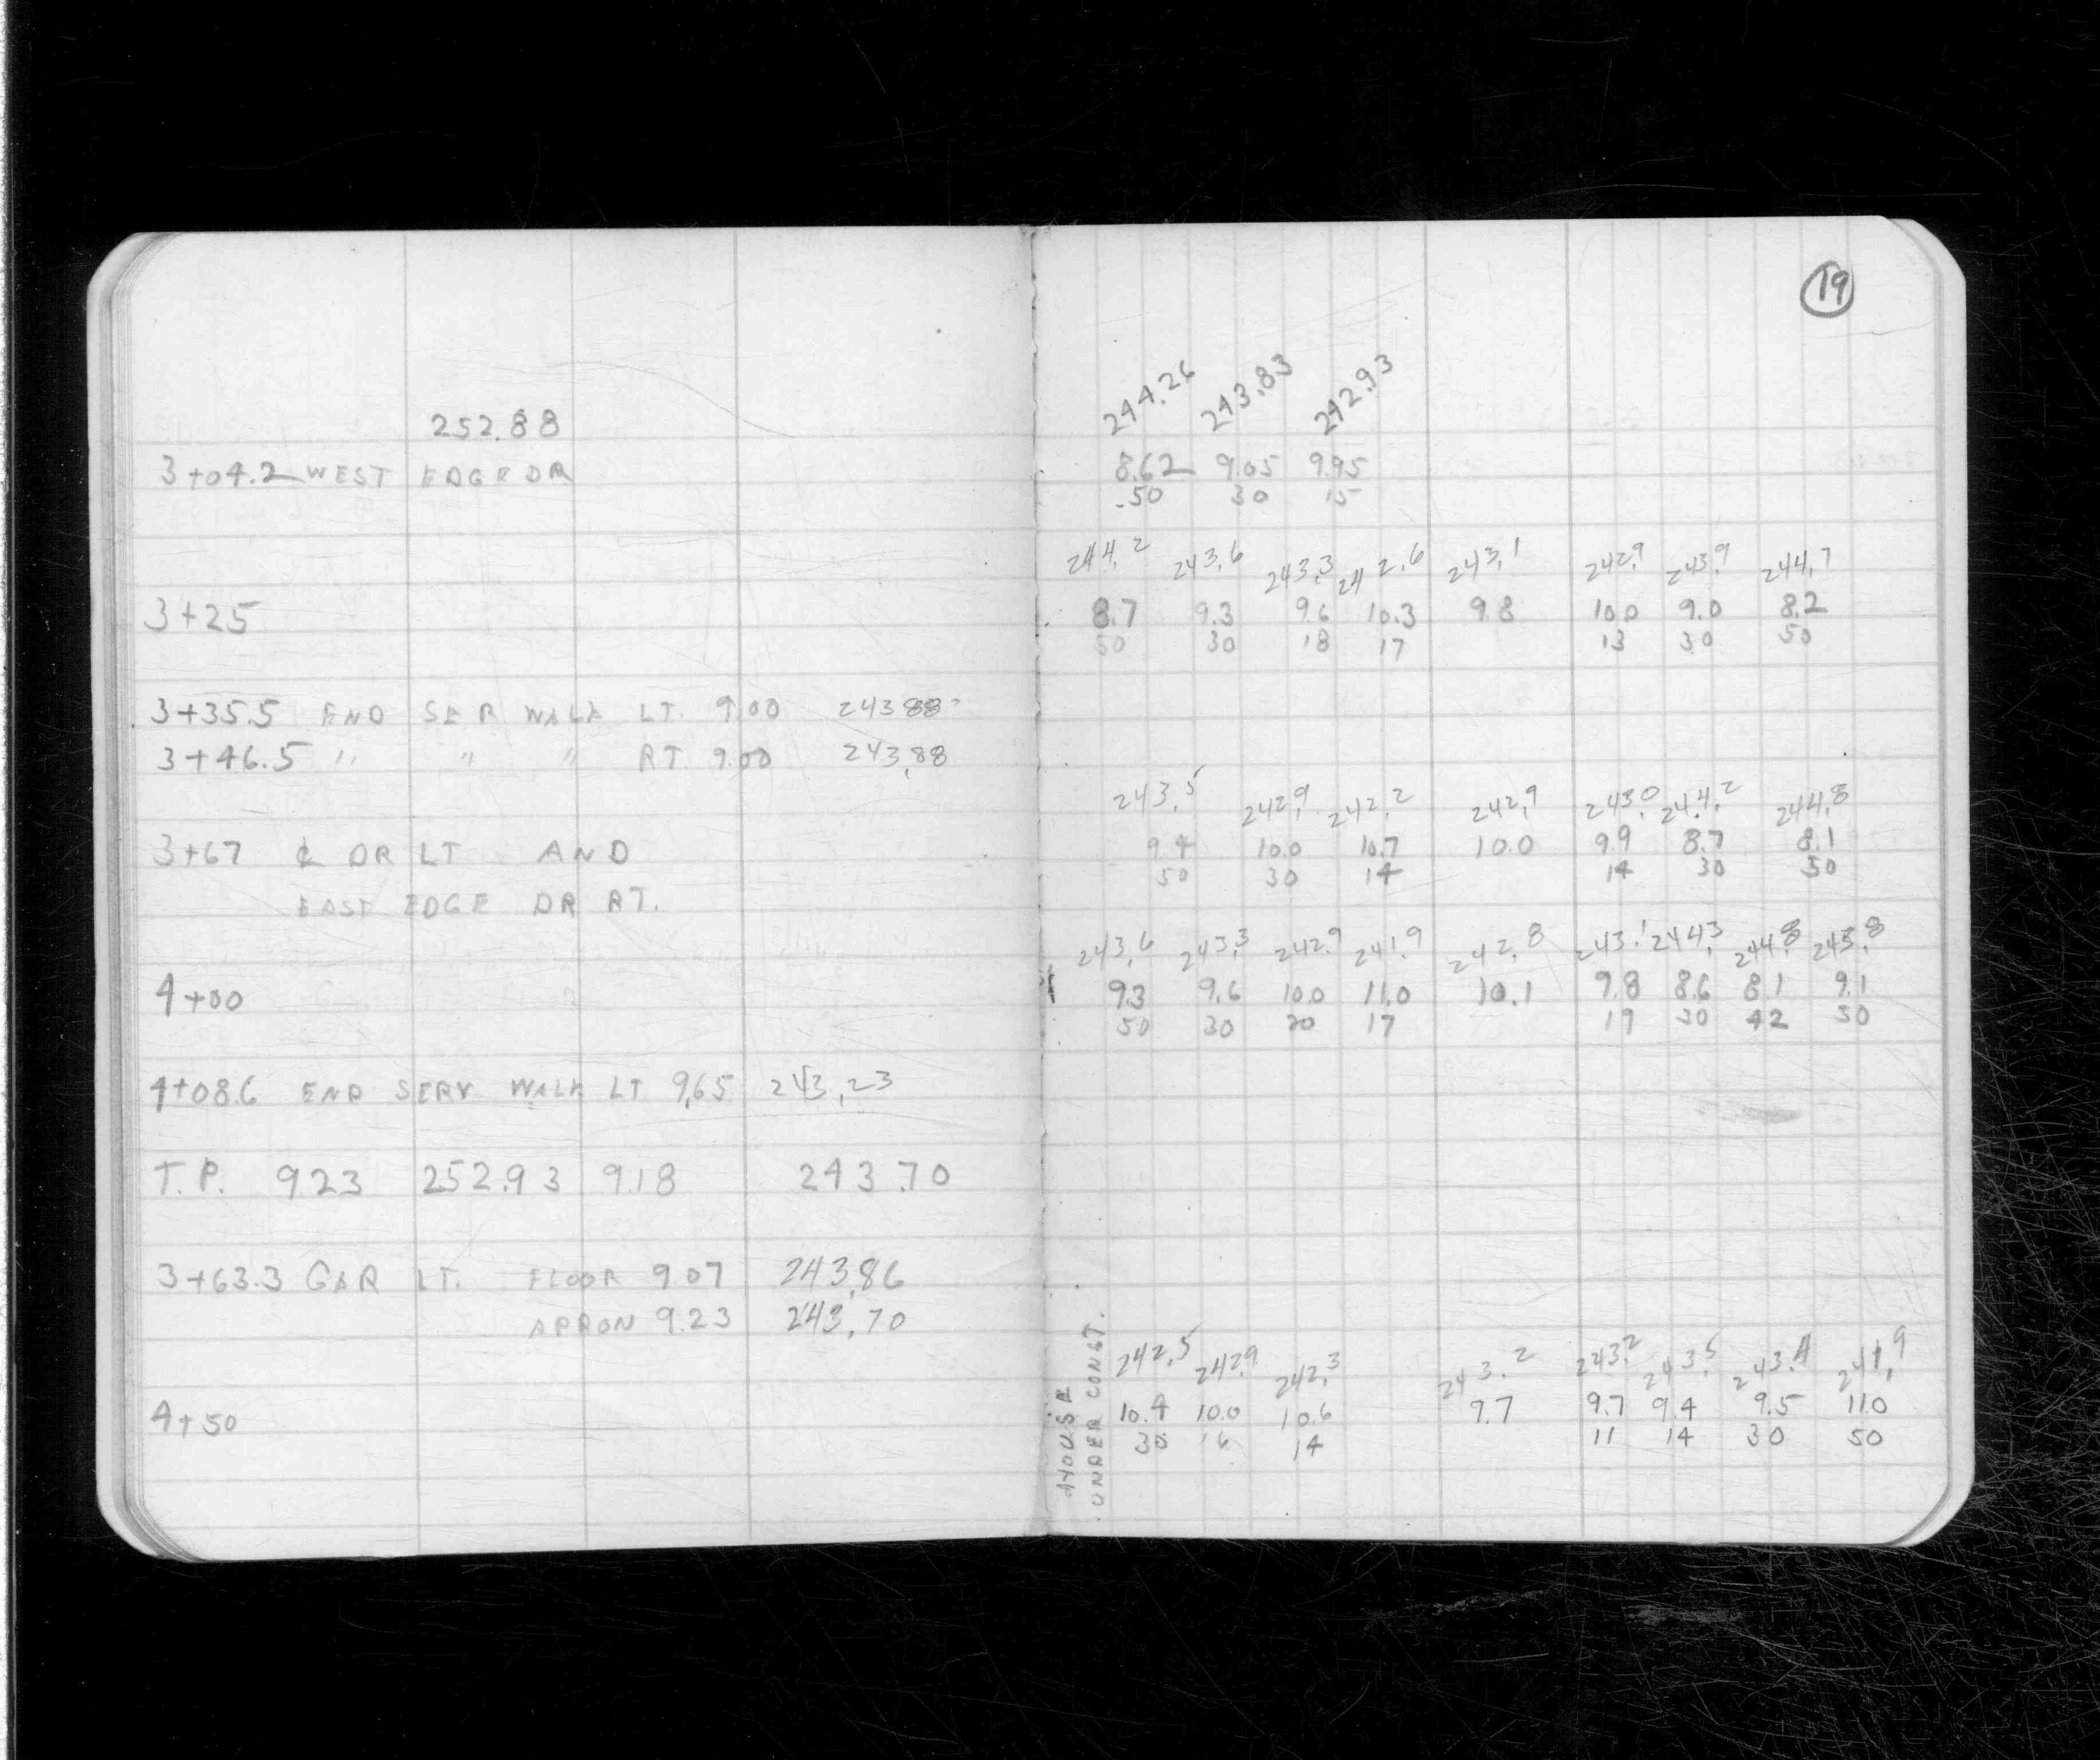 252.88
3+04.2 WEST EDGE DR
3+25
3+35.5 END SER WALK LT. 9.00 243.88
3+46.5 " " " RT. 9.00 243.88
3+67 ℄ DR LT AND
EAST EDGE DR RT.
4+00
4+08.6 END SERV WALK LT 9.65 243.23
T.P. 9.23 252.93 9.18 243.70
3+63.3 GAR LT. FLOOR 9.07 243.86
APRON 9.23 243.70
4+50
19
244.26 243.83 242.93
8.62 9.05 9.95
50 30 15
244.2 243.6 243.3 242.6 243.1 242.9 243.9 244.7
8.7 9.3 9.6 10.3 9.8 10.0 9.0 8.2
50 30 18 17 13 30 50
243.5 242.9 242.2 242.9 243.0 244.2 244.8
9.4 10.0 10.7 10.0 9.9 8.7 8.1
50 30 14 14 30 50
243.6 243.3 242.9 241.9 242.8 243.1 244.3 244.8 243.8
9.3 9.6 10.0 11.0 10.1 9.8 8.6 8.1 9.1
50 30 20 17 19 30 42 50
HOUSE
UNDER CONST.
242.5 242.9 242.3 243.2 243.2 243.5 243.4 241.9
10.4 10.0 10.6 9.7 9.7 9.4 9.5 11.0
30 16 14 11 14 30 50